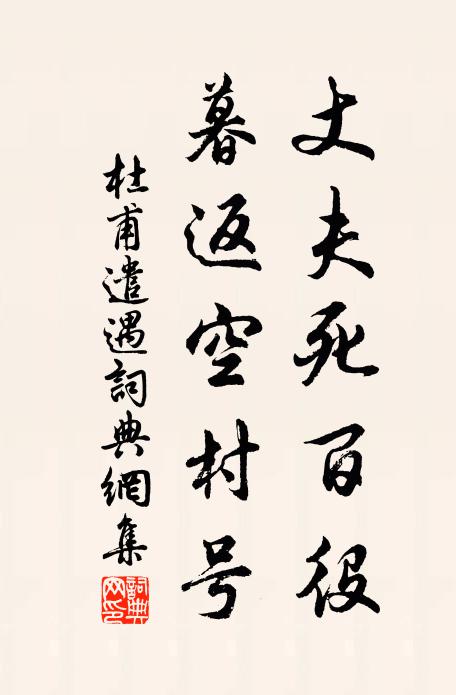 丈夫死百役
暮返空村号
杜甫遣遇詞典網集
詞典网印